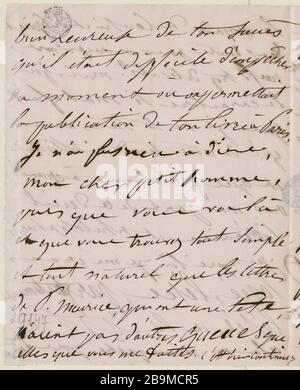 bien heureuse de ton succès
qu'il était difficile d'espérer
au moment où on permettait
la publication de ton livre à Paris.
Je n'ai plus rien à dire,
mon cher petit homme,
puis que vous voilà
et que vous trouvez tout simple
et tout naturel que les lettres
de P. Meurice, qui ont une tête,
n'aient pas d'autres queues que
celles que vous me dictes.
alamy
Image ID: 2B9MCR5
www.alamy.com